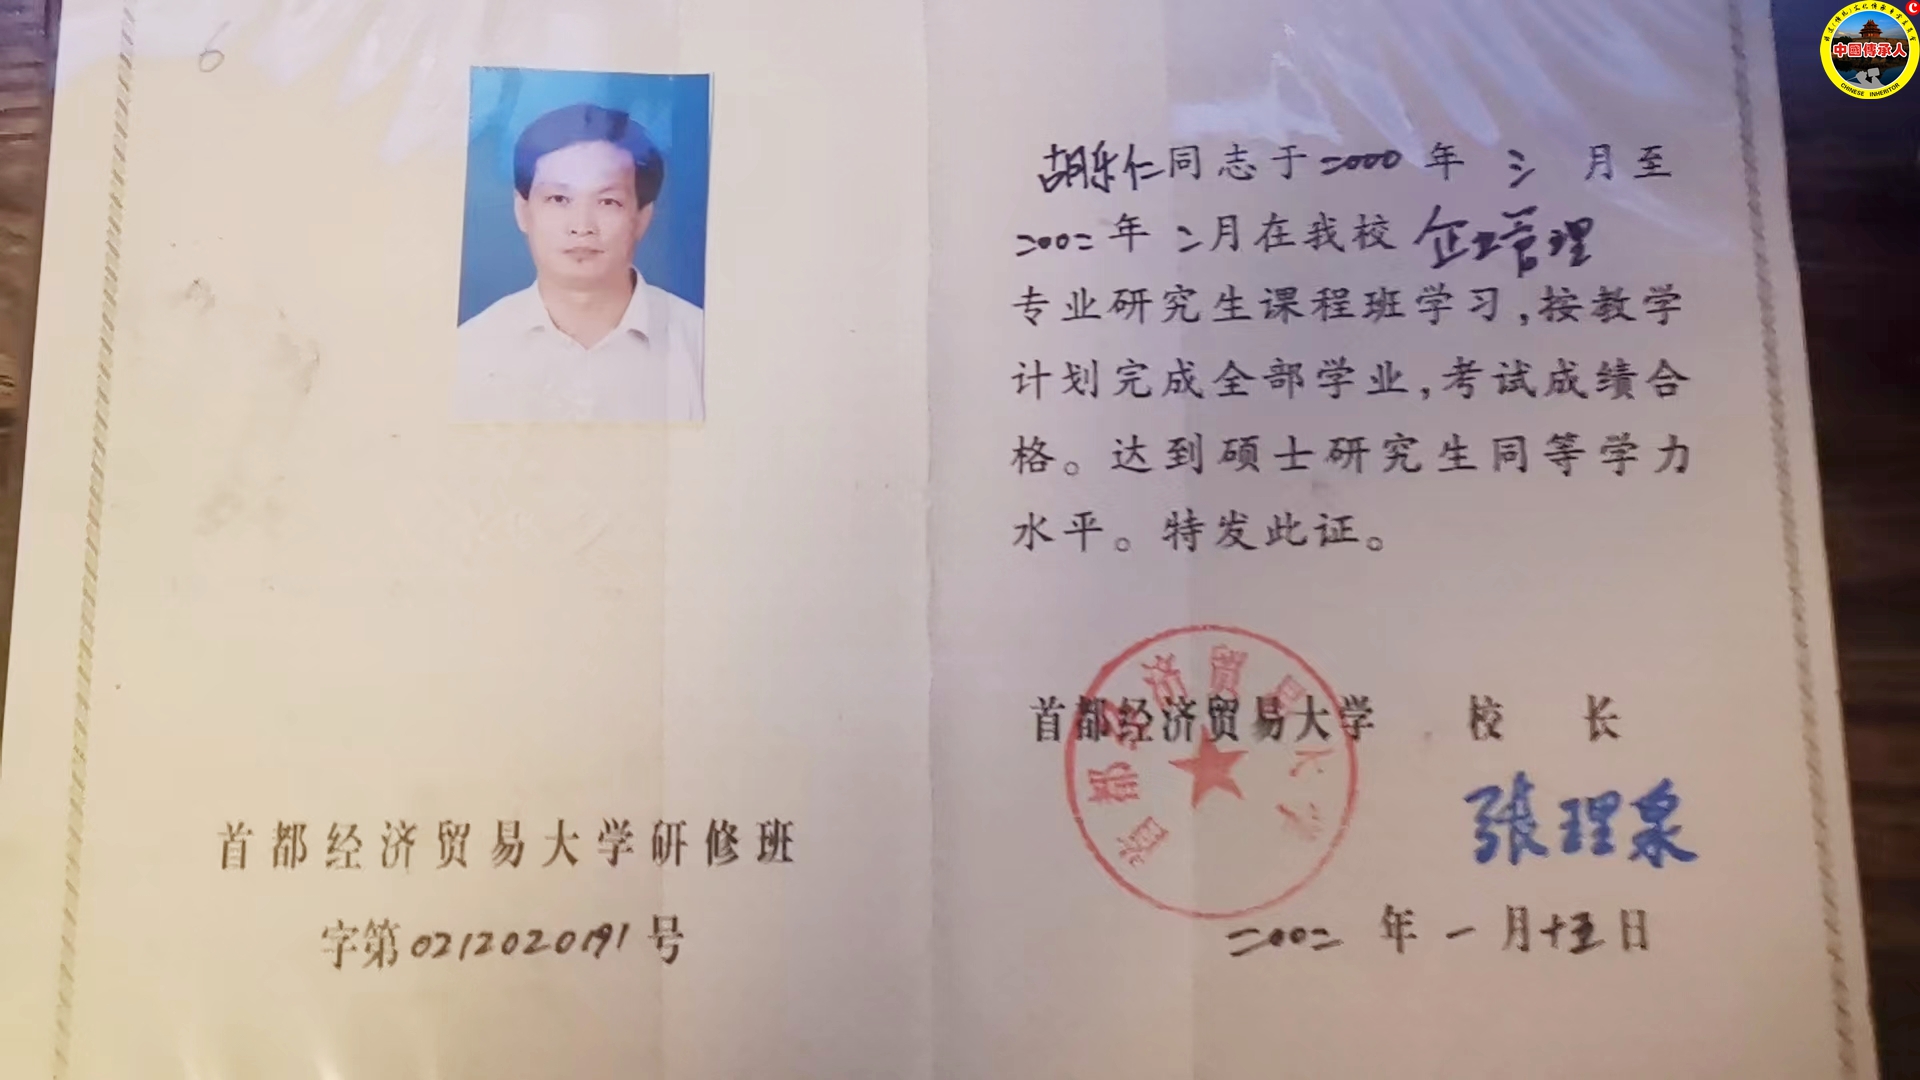 6
首都经济贸易大学研修班
字第0212020191号
胡乐仁同志于二〇〇〇年 三 月至
二〇〇二年 二月在我校 企业管理
专业研究生课程班学习,按教学
计划完成全部学业,考试成绩合
格。达到硕士研究生同等学力
水平。特发此证。
首都经济贸易大学 校 长
首都经济贸易大学
张理泉
二〇〇二 年 一 月十五日
中國傳承人
CHINESE INHERITOR
C